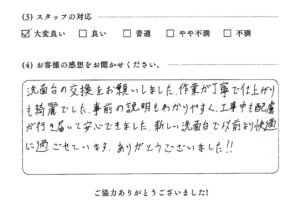 (3) スタッフの対応
☑大変良い □良い □普通 □やや不満 □不満
(4) お客様の感想をお聞かせください。
洗面台の交換をお願いしました。作業が丁寧で仕上がり
も綺麗でした。事前の説明もわかりやすく、工事中も配慮
が行き届いて安心できました。新しい洗面台で以前より快適
に過ごせています。ありがとうございました!!
ご協力ありがとうございました!